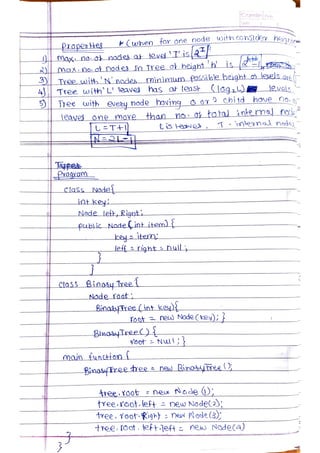 Properties (when for one node with consider height
1) max. no of nodes at level 'I' is 2^I
2) max. no. of nodes in Tree of height 'h' is
3) Tree with 'N' nodes minimum possible height or levels are
4) Tree with 'L' leaves has at least (log₂L) levels
5) Tree with every node having 0 or 2 child have no. of
leaves one more than no. of total internal nodes
L = T+1 L is leaves, T - internal nodes
N = 2L-1
Types
Program
class Node{
int key;
Node left, Right;
public Node(int item){
key = item;
left = right = null;
}
}
class Binary Tree {
Node root;
BinaryTree (int key){
root = new Node(key); }
BinaryTree() {
root = Null; }
main function {
BinaryTree tree = new BinaryTree();
tree.root = new Node (1);
tree.root.left = new Node(2);
tree.root.Right = new Node(3);
tree.root.left.left = new Node(4)
}
}